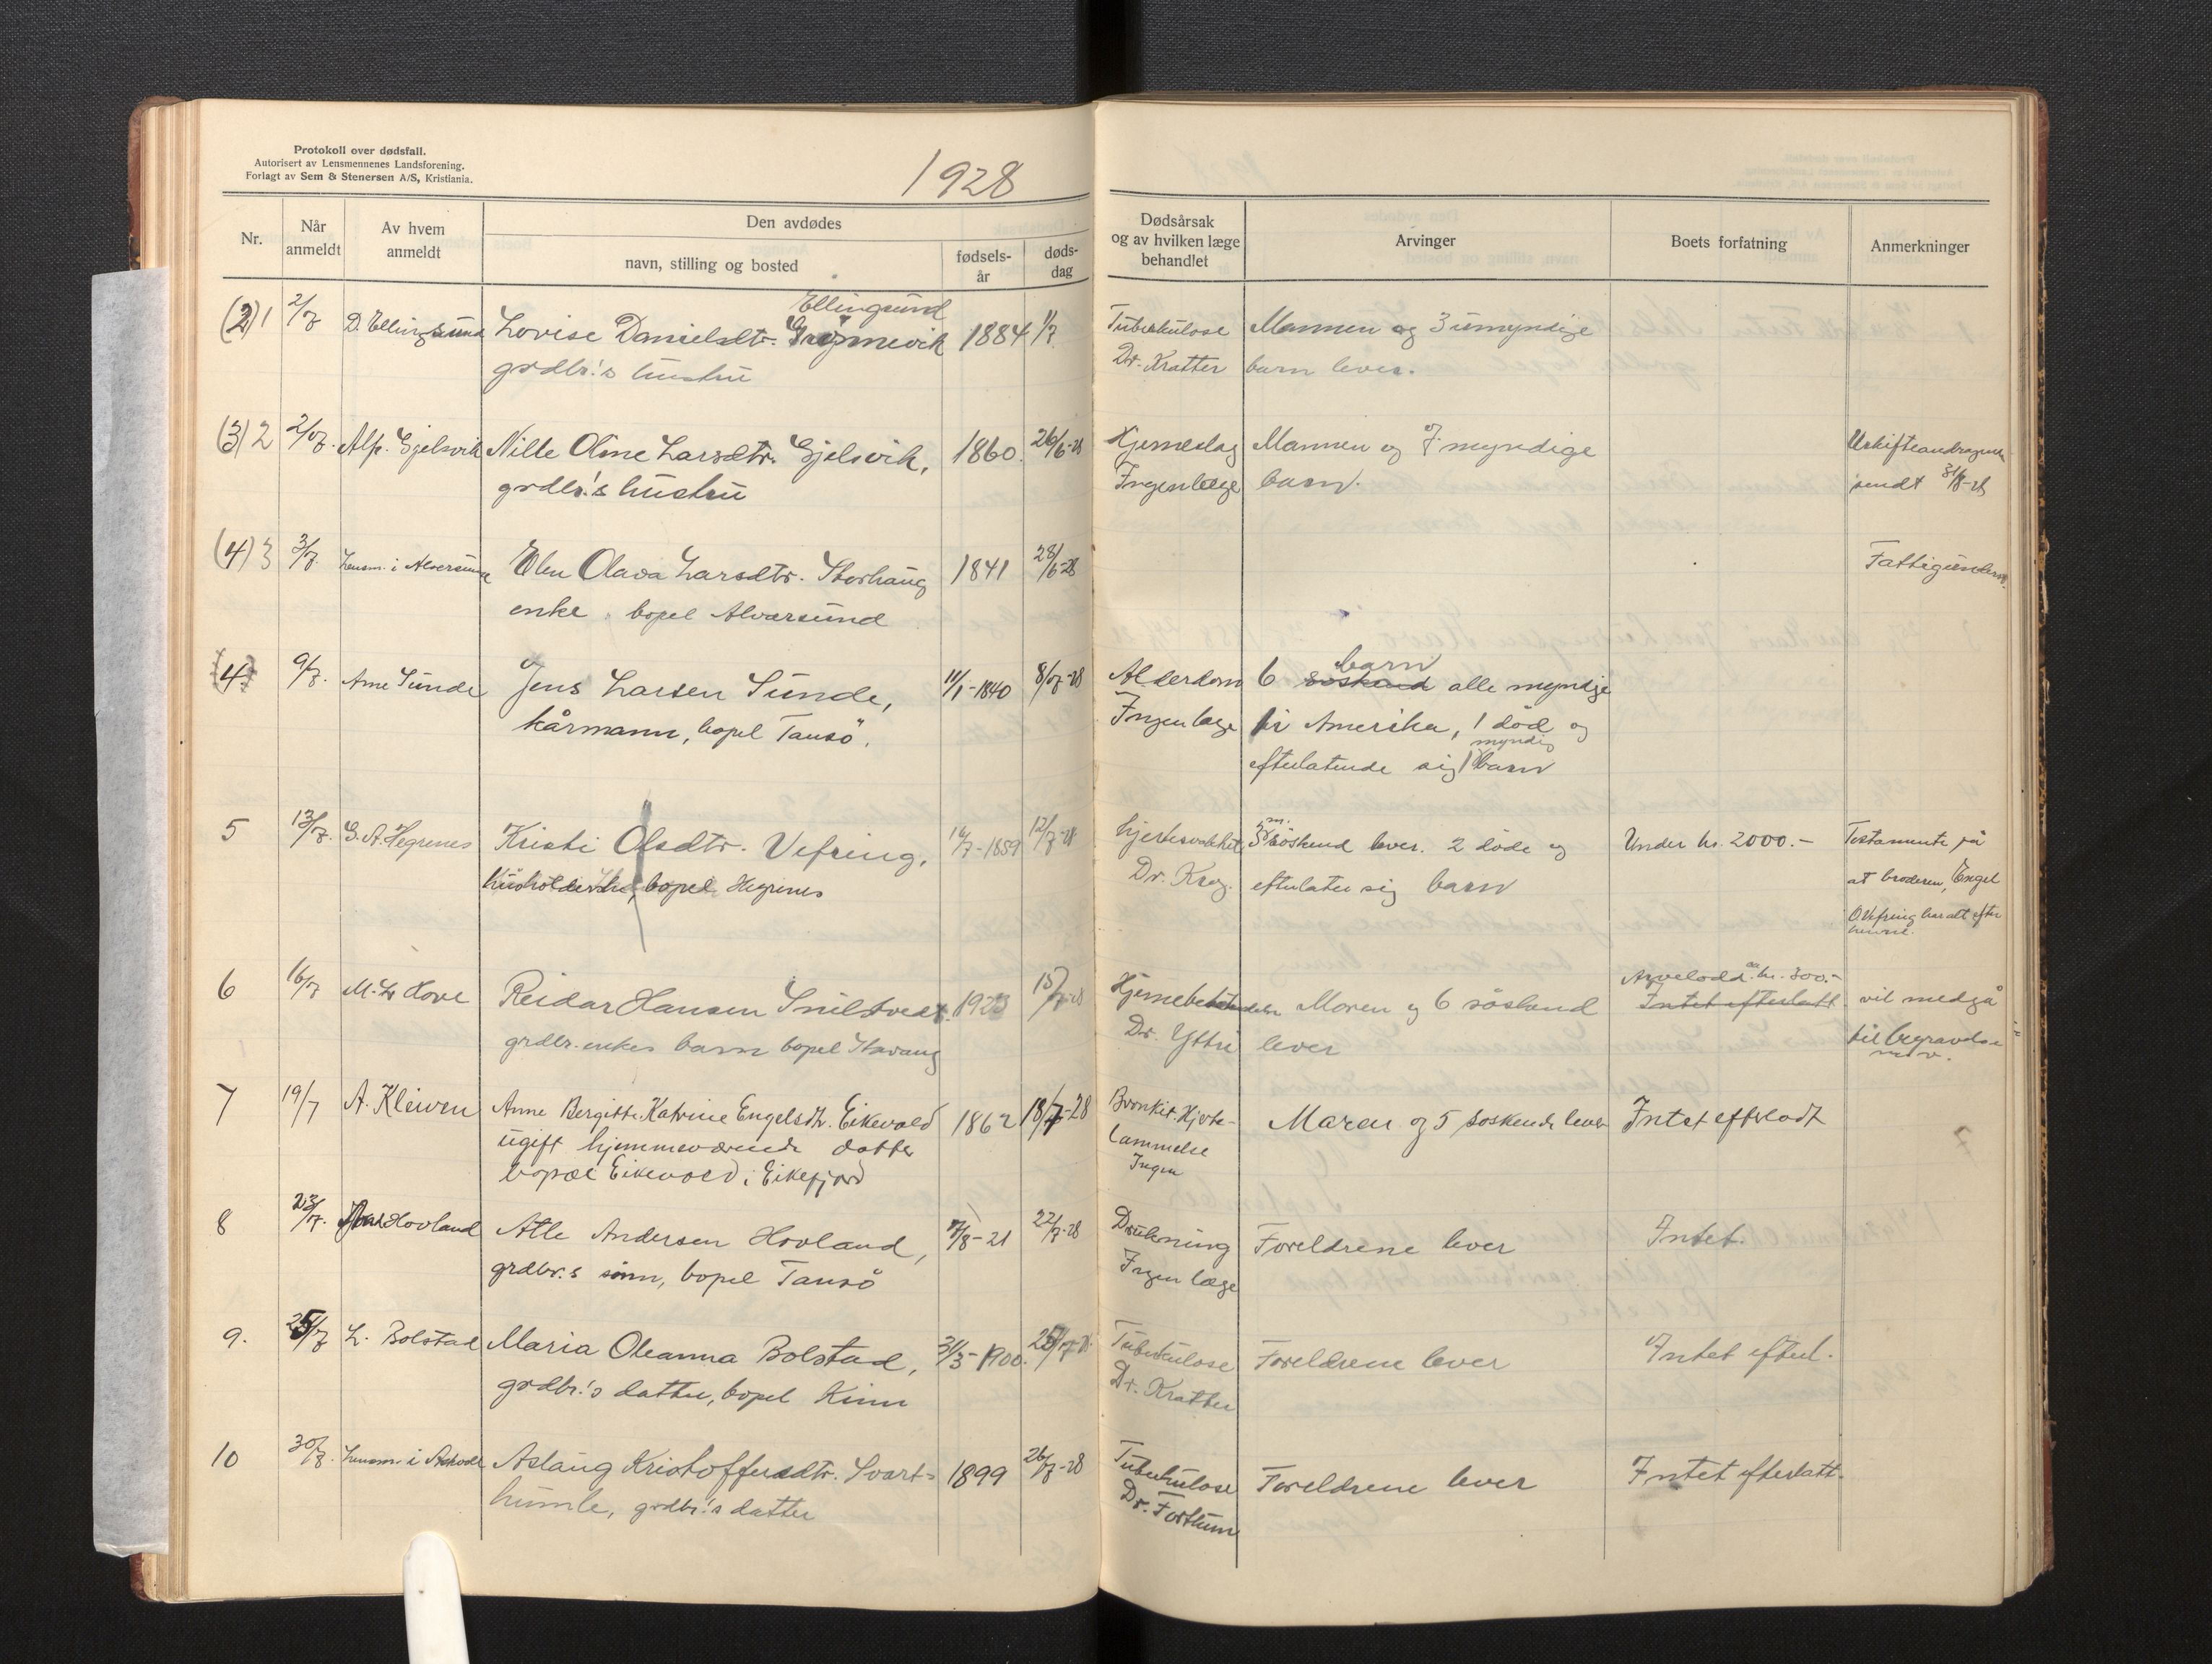 Protokoll over dødsfall.
Autorisert av Lensmennenes Landsforening.
Forlagt av Sem & Stenersen A/S, Kristiania.
1928
Nr.
Når anmeldt
Av hvem anmeldt
Den avdødes
navn, stilling og bosted
fødsels-år
døds-dag
Dødsårsak og av hvilken læge behandlet
Arvinger
Boets forfatning
Anmerkninger
(2) 1 2/7 D. Ellingsund Lovise Danielsdtr. Ellingsund 1884 1/7 Tuberkulose Mannen og 3 umyndige
grdbr.'s hustru Dr. Kratter barn lever.
(3) 2 2/7. Alf. Gjelsvik Nille Oline Larsdtr. Gjelsvik, 1860. 26/6-28 Hjerneslag Mannen og 7 myndige Uskifteandragende
grdbr.'s hustru Ingen læge barn. sendt 31/8-28
(4) 3 3/7. Lensm. i Alversund Elen Olava Larsdtr. Storhaug 1841 28/6-28 Fattigunderst.
enke, bopel Alversund
4 9/7. Arne Sunde Jens Larsen Sunde, 11/1-1840 8/7-28 Alderdom 6 søskend barn alle myndige
kårmann, bopel Tansö. Ingen læge i Amerika, 1 död og
efterlatende sig 1 myndig barn
5 13/7. G.A. Hegrenes Kristi Olsdtr. Vefring, 16/7-1859 12/7-28 hjertesvakhet 3 m. söskend lever. 2 döde og Under kr. 2000.- Testamente på
Husholderske, bopel Hegrenes Dr. Krog. efterlater sig barn at broderen, Engel
O. Vefring har alt efter
henne.
6 16/7 M. L. Hove Reidar Hansen Snilstveit 1923 15/7-28 Hjernebetendelse Moren og 6 söskend Arvelodd ca. kr. 300.- Intet efterlatt vil medgå
grdbr. enkes barn bopel Stavang Dr. Yttri lever til begravelse
m.v.
7 19/7 A. Kleiven Anne Bergitte Katrine Engelsdtr. Eikevold 1862 18/7-28 Bronkit. Hjerte- Moren og 5 søskende lever Intet efterladt
ugift hjemmeværende datter lammelse
bopæl Eikevold i Eikefjord Ingen
8 23/7. Hovland Atle Andersen Hovland, 7/8-21 22/7-28 Drukning Foreldrene lever Intet.
grdbr.s sönn, bopel Tansö Ingen læge
9. 25/7 L. Bolstad Maria Oleanna Bolstad, 31/3-1900. Tuberkulose Foreldrene lever Intet efterl.
grdbr.'s datter, bopel Kinn Dr. Kratter
10 30/7. Lensm. i Askvoll Aslaug Kristoffersdtr. Svart- 1899 26/7-28 Tuberkulose Foreldrene lever Intet efterlatt.
humle, grdbr.'s datter Dr. Forthun